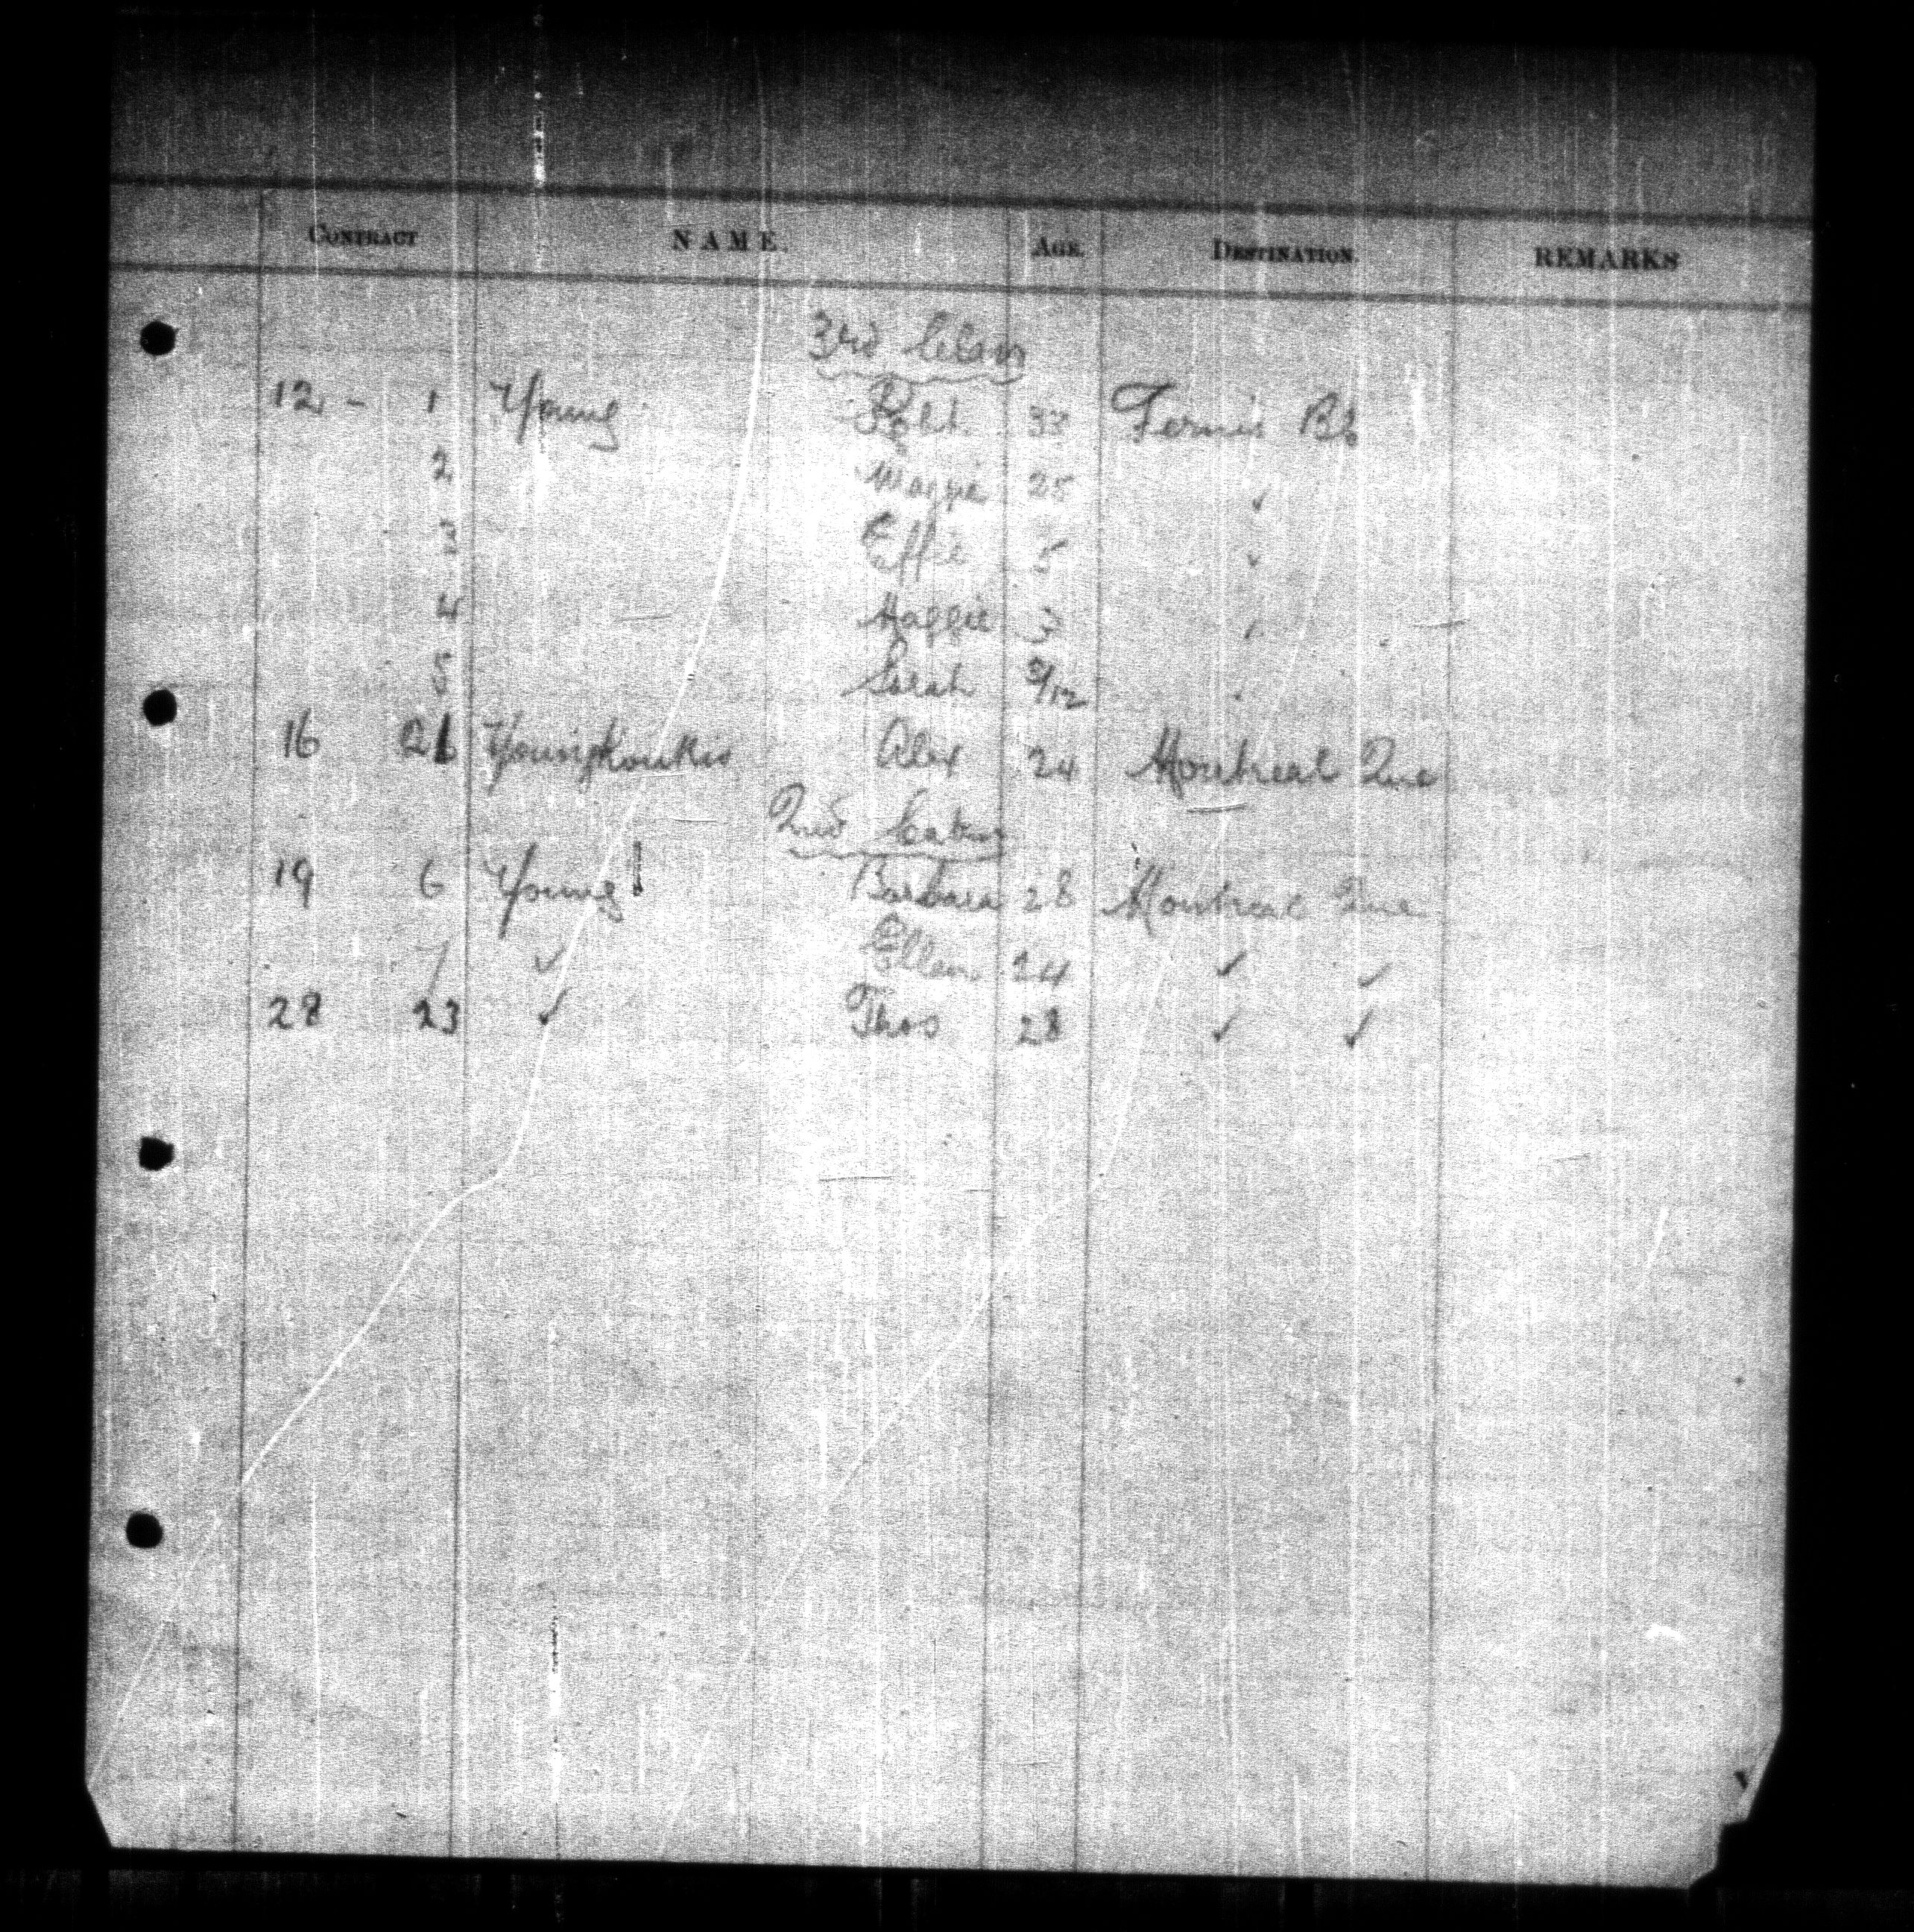 CONTRACT NAME. AGE. DESTINATION. REMARKS
3rd Class
12 - 1 Young Robt. 33 Fernie Bc
2 Maggie 25 ✓
3 Effie 5 ✓
4 Maggie 3
5 Sarah /12
16 21 Alex 24 Montreal Que
2nd Cabin
19 6 Young Barbara 28 Montreal Que
7 ✓ Ellen 24 ✓ ✓
28 23 ✓ Thos 28 ✓ ✓
Y